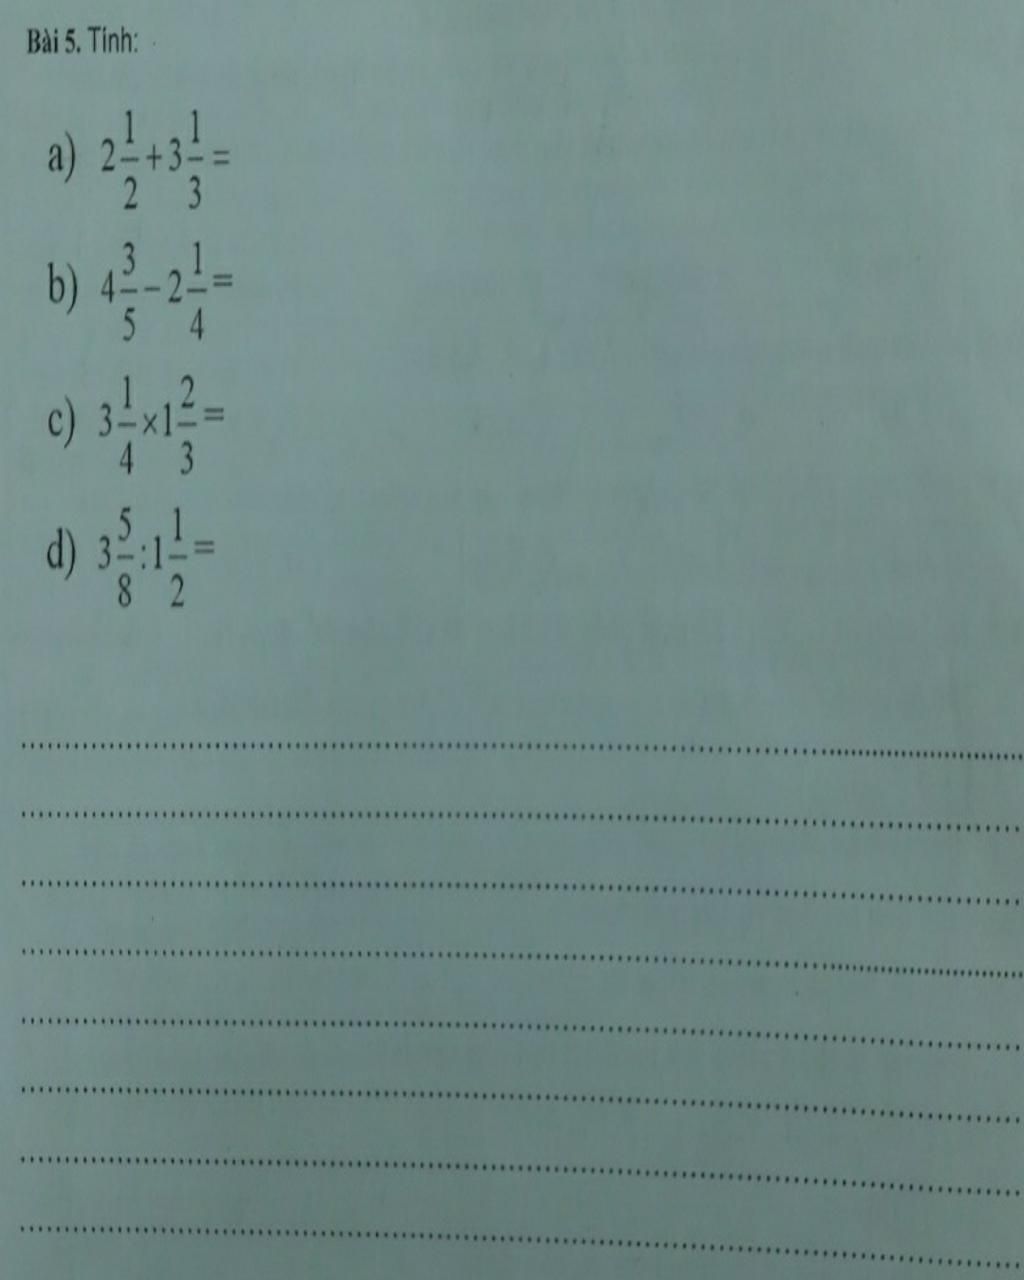 Bài 5. Tính:
a) 2 1/2 + 3 1/3 =
b) 4 3/5 - 2 1/4 =
c) 3 1/4 × 1 2/3 =
d) 3 5/8 : 1 1/2 =